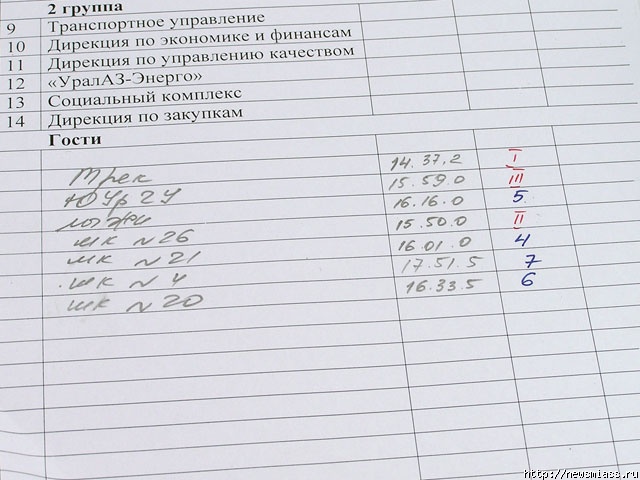 2 группа
9 Транспортное управление
10 Дирекция по экономике и финансам
11 Дирекция по управлению качеством
12 «УралАЗ-Энерго»
13 Социальный комплекс
14 Дирекция по закупкам
Гости
Трек 14.37,2 I
ЮУрГУ 15.59.0 III
лыжи 16.16.0 5
шк №26 15.50.0 II
шк №21 16.01.0 4
шк №4 17.51.5 7
шк №20 16.33.5 6
http://newsmiass.ru